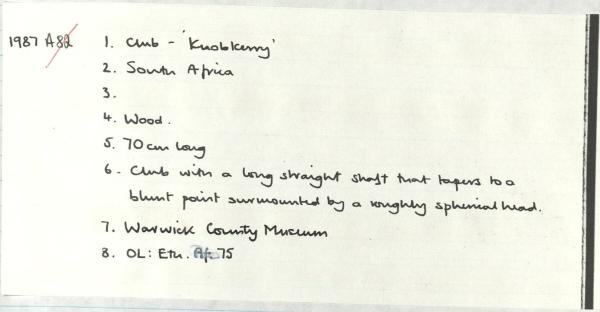 1987 A82 1. Club - 'Knobkerry'
2. South Africa
3.
4. Wood.
5. 70cm long
6. Club with a long straight shaft that tapers to a
blunt point surmounted by a roughly spherical head.
7. Warwick County Museum
8. OL: Eth. Af. 75